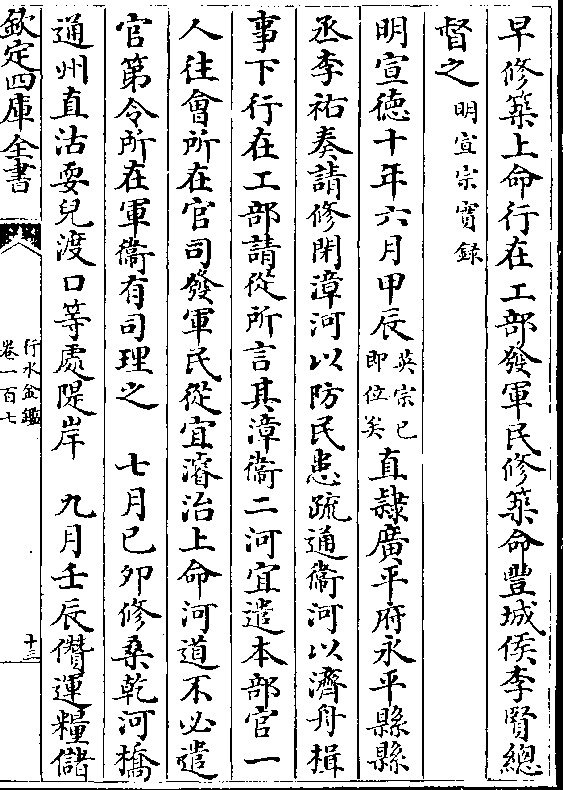 早修築上命行在工部發軍民修築命豐城侯李賢總
督之明宣宗實錄
明宣德十年六月甲辰英宗已即位矣直隷廣平府永平縣縣
丞李祐奏請修閉漳河以防民患疏通衞河以濟舟楫
事下行在工部請從所言其漳衞二河宜遣本部官一
人往會所在官司發軍民從宜濬治上命河道不必遣
官第令所在軍衞有司理之　七月已夘修桑乾河橋
通州直沽耍兒渡口等處隄岸　九月壬辰儹運糧儲
欽定四庫全書
行水金鑑
卷一百七
十三